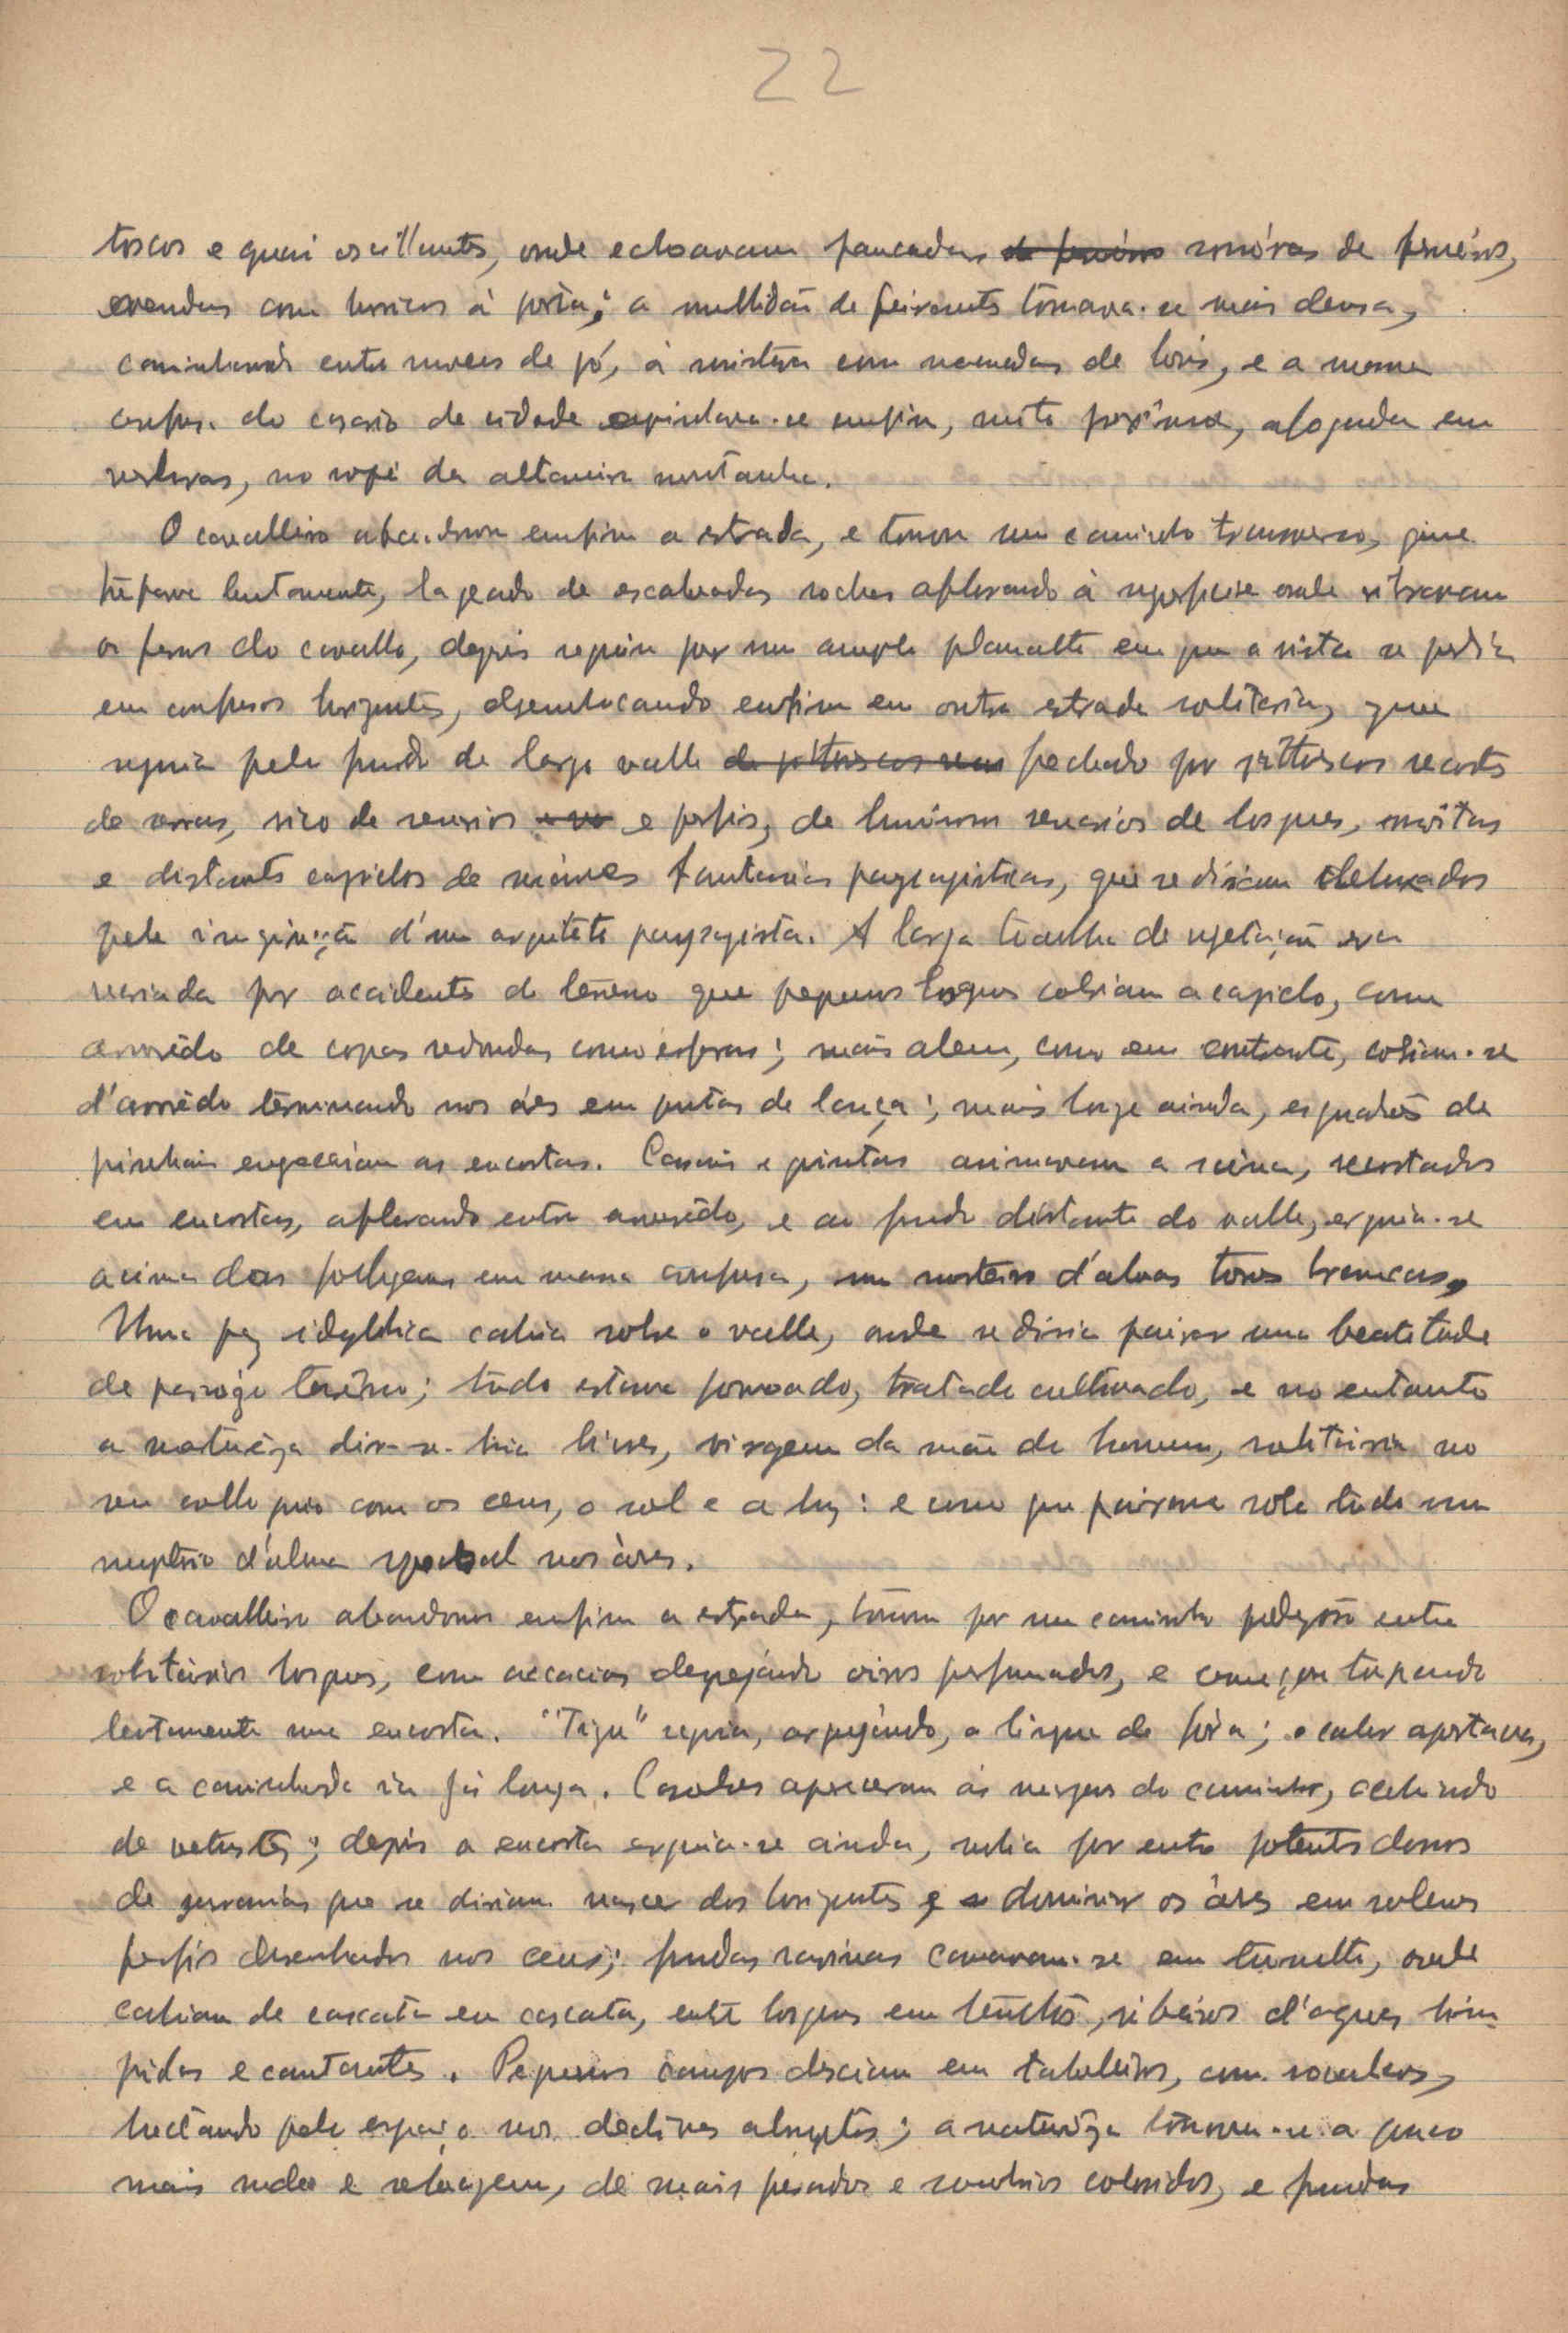 22
toscos e quasi oscillantes, onde echoavam pancadas de sonóras de ferreiros,
vendas com burricos à porta; a multidão de feirantes tornava-se mais densa,
caminhando entre nuvens de pó, à mistura com manadas de bois, e a massa
confusa do casario da cidade enfim, muito proxima, afogada em
verduras, no sopé da altaneira montanha.
O cavalleiro abandonou emfim a estrada, e tomou um caminho transverso, que
trepava lentamente, lageado de escalvadas rochas aflorando à superficie onde vibravam
os ferros do cavallo, depois seguiu por um amplo planalto em que a vista se perdia
em confusos horizontes, desembocando emfim em outra estrada solitaria, que
seguia pelo fundo de largo valle de pittorescos fechado por pittorescos recortes
de serras, rico de scenarios e perfis, de scenarios de bosques, moitas
e distantes capichos de fantasias paysagisticas, que se diriam
pela imaginação d'um arquiteto paysagista. A larga toalha de vegetação era
variada por accidentes do terreno que pequenos bosques cobriam a capicho, com
arvorêdo de copas redondas como esferas; mais alem, como em contraste, cobriam-se
d'arvorêdo terminando nos áres em pontas de lança; mais longe ainda, esquadrões de
pinhais as encostas. Casais e quintas animavam a scena, recortados
em encostas, aflorando entre arvorêdo, e ao fundo distante do valle, erguia-se
acima das folhagens em massa confusa, um mosteiro d'alvas torres brancas.
Uma paz idyllica cahia sobre o valle, onde se diria pairar uma beatitude
de terreno; tudo estava povoado, tratado cultivado, e no entanto
a naturêza dir-se-hia livre, virgem da mão do homem, solitaria no
seu colloquio com os ceus, o sol e a luz: e como que pairava sobre tudo um
mysterio d'alma nos áres.
O cavalleiro abandonou emfim a estrada, tomou por um caminho pedregoso entre
solitários bosques, com accacias despejando áres perfumados, e começou trepando
lentamente uma encosta. "Tigre" seguia, arquejando, a lingua de fóra; o calor apertava,
e a caminhada ia já longa. Casebres apareceram ás margens do caminho,
de vetustez; depois a encosta erguia-se ainda, subia por entre potentes dorsos
de serranias que se diriam nascer dos horizontes e dominar os áres em solenes
perfis desenhados nos ceus; fundas ravinas cavavam-se em tumulto, onde
cahiam de cascata em cascata, entre bosques em, ribeiros d'aguas lim-
pidas e cantantes. Pequenos campos desciam em taboleiros, com socalcos,
luctando pelo espaço nos declives abruptos; a naturêza tornava-se a pouco
mais rude e selvagem, de mais pesados e sombrios coloridos, e fundas